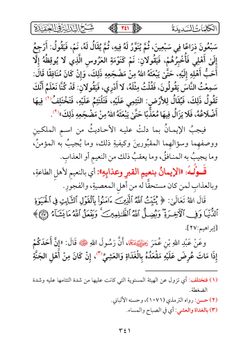 الكلمات السديدة
٣٤١
شرح البداية في العقيدة
سَبْعُونَ ذِرَاعًا فِي سَبْعِينَ، ثُمَّ يُنَوَّرُ لَهُ فِيهِ، ثُمَّ يُقَالُ لَهُ، نَمْ، فَيَقُولُ: أَرْجِعُ
إِلَى أَهْلِي فَأُخْبِرُهُمْ، فَيَقُولَانِ: نَمْ كَنَوْمَةِ العَرُوسِ الَّذِي لَا يُوقِظُهُ إِلَّا
أَحَبُّ أَهْلِهِ إِلَيْهِ، حَتَّى يَبْعَثَهُ اللهُ مِنْ مَضْجَعِهِ ذَلِكَ، وَإِنْ كَانَ مُنَافِقًا قَالَ:
سَمِعْتُ النَّاسَ يَقُولُونَ، فَقُلْتُ مِثْلَهُ، لَا أَدْرِي، فَيَقُولَانِ: قَدْ كُنَّا نَعْلَمُ أَنَّكَ
تَقُولُ ذَلِكَ، فَيُقَالُ لِلأَرْضِ: التَئِمِي عَلَيْهِ، فَتَلْتَئِمُ عَلَيْهِ، فَتَخْتَلِفُ(١) فِيهَا
أَضْلَاعُهُ، فَلَا يَزَالُ فِيهَا مُعَذَّبًا حَتَّى يَبْعَثَهُ اللهُ مِنْ مَضْجَعِهِ ذَلِكَ»(٢).
فيجبُ الإيمانُ بما دلت عليه الأحاديثُ من اسم الملكينِ
ووصفهما وسؤالهما المقبُورين وكيفيةِ ذلك، وما يُجيبُ به المؤمنُ،
وما يجيبُ به المنافقُ، وما يعقبُ ذلك من النعيمِ أو العذابِ.
قَــوْلُــهُ: «الإيمانُ بنعيمِ القبرِ وعذابِهِ»: أي بالنعيمِ لأهل الطاعةِ،
وبالعذابِ لمن كان مستحقًّا له من أهل المعصيةِ، والفجورِ.
قَالَ اللهُ تَعَالَى: ﴿يُثَبِّتُ اللَّهُ الَّذِينَ ءَامَنُوا بِالْقَوْلِ الثَّابِتِ فِي الْحَيَوٰةِ
الدُّنْيَا وَفِي الْأَخِرَةِ وَيُضِلُّ اللَّهُ الظَّالِمِينَ وَيَفْعَلُ اللَّهُ مَا يَشَاءُ ﴿٢٧﴾﴾
[إبراهيم: ٢٧].
وَعَنْ عَبدِ اللهِ بْنِ عُمَرَ، أَنَّ رَسُولَ اللهِ ﷺ قَالَ: «إِنَّ أَحَدَكُمْ
إِذَا مَاتَ عُرِضَ عَلَيْهِ مَقْعَدُهُ بِالْغَدَاةِ وَالعَشِيِّ(٣)، إِنْ كَانَ مِنْ أَهْلِ الجَنَّةِ
(١) فتختلف: أي تزول عن الهيئة المستوية التي كانت عليها من شدة التئامها عليه وشدة
الضغطة.
(٢) حسن: رواه الترمذي (١٠٧١)، وحسنه الألباني.
(٣) بالغداة والعشي: أي في الصباح والمساء.
٣٤١